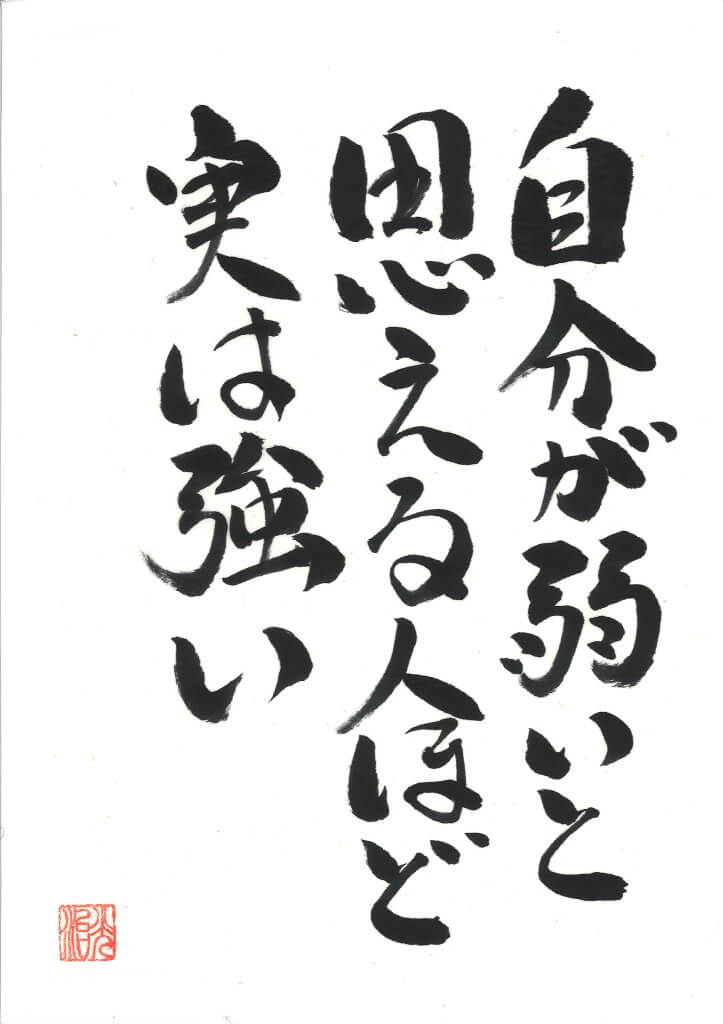 自分が弱いと
思える人ほど
実は強い